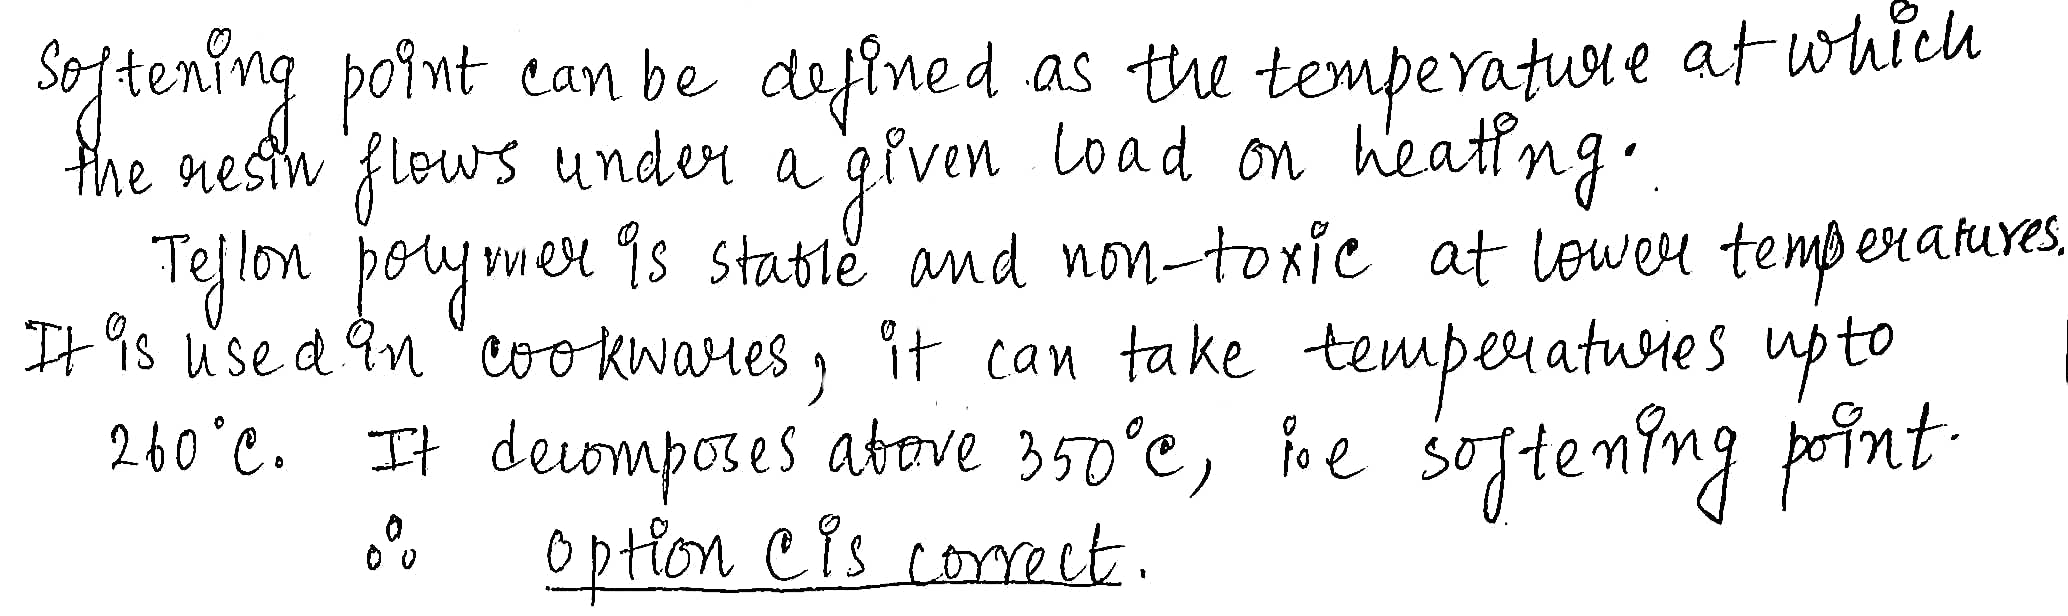 Softening point can be defined as the temperature at which
the resin flows under a given load on heating.
Teflon polymer is stable and non-toxic at lower temperatures.
It is used in cookwares, it can take temperatures upto
260°C. It decomposes above 350°C, i.e softening point.
∴ option C is correct.